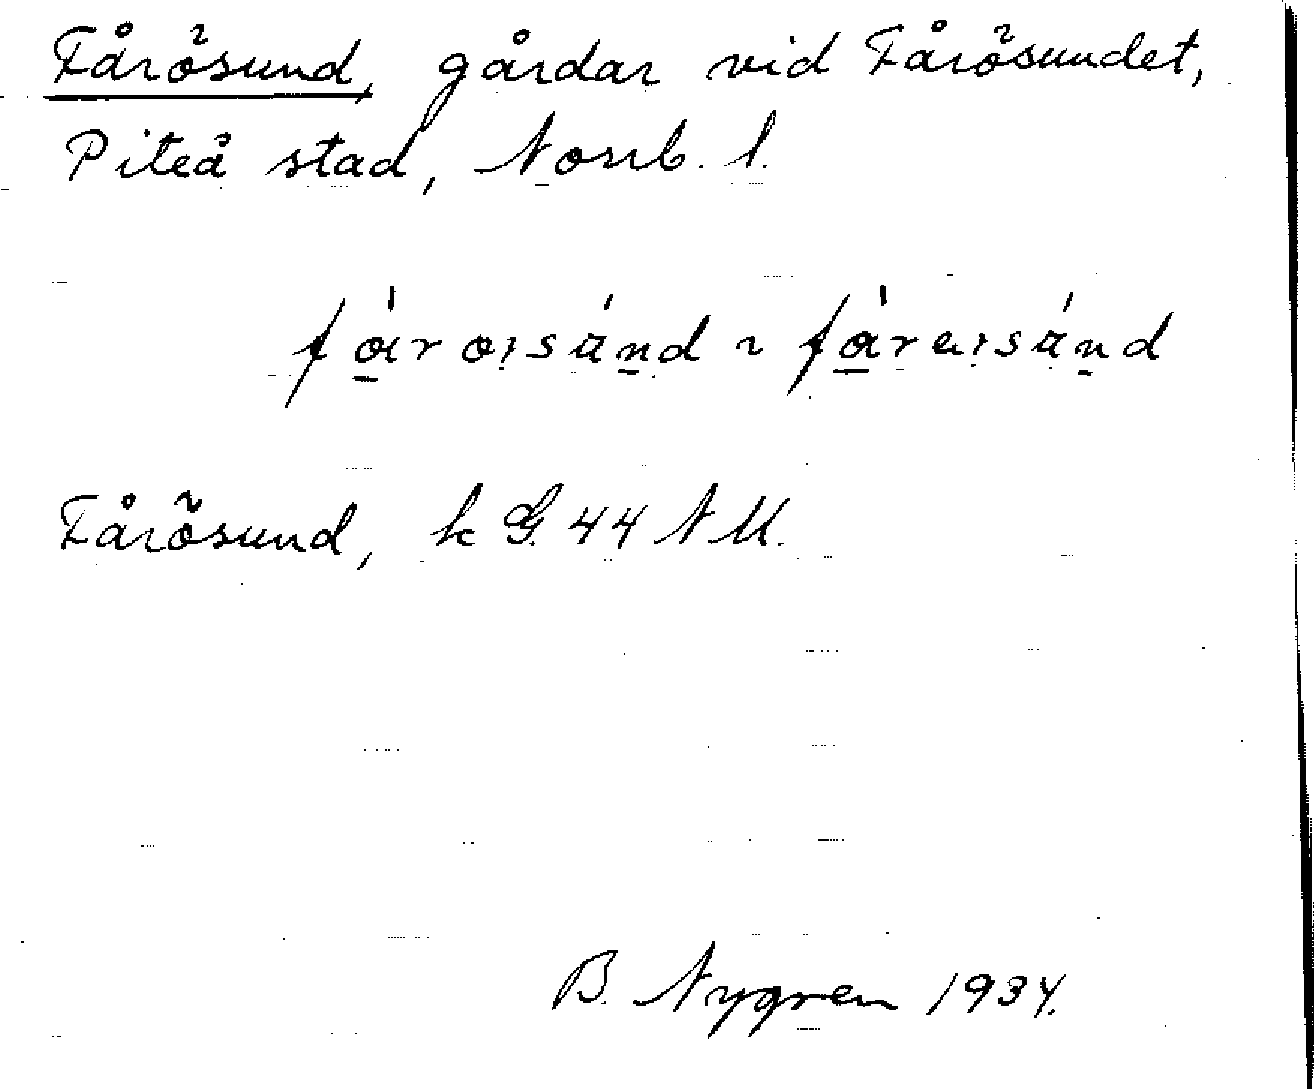 Fårösund, gårdar vid Fårösundet,
Piteå stad, Norrb. l.
Fårösund, k G. 44 NU.
B. Nygren 1934.